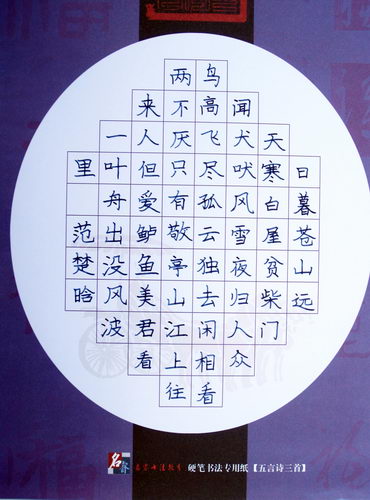 日暮苍山远
天寒白屋贫柴门
闻犬吠风雪夜归人众
鸟高飞尽孤云独去闲相看
两不厌只有敬亭山江上往
来人但爱鲈鱼美君看
一叶舟出没风波
里 范楚晗
硬笔书法专用纸【五言诗三首】